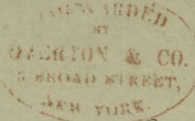 FORWARDED
BY
OVERTON & CO.
BROAD STREET,
NEW YORK.